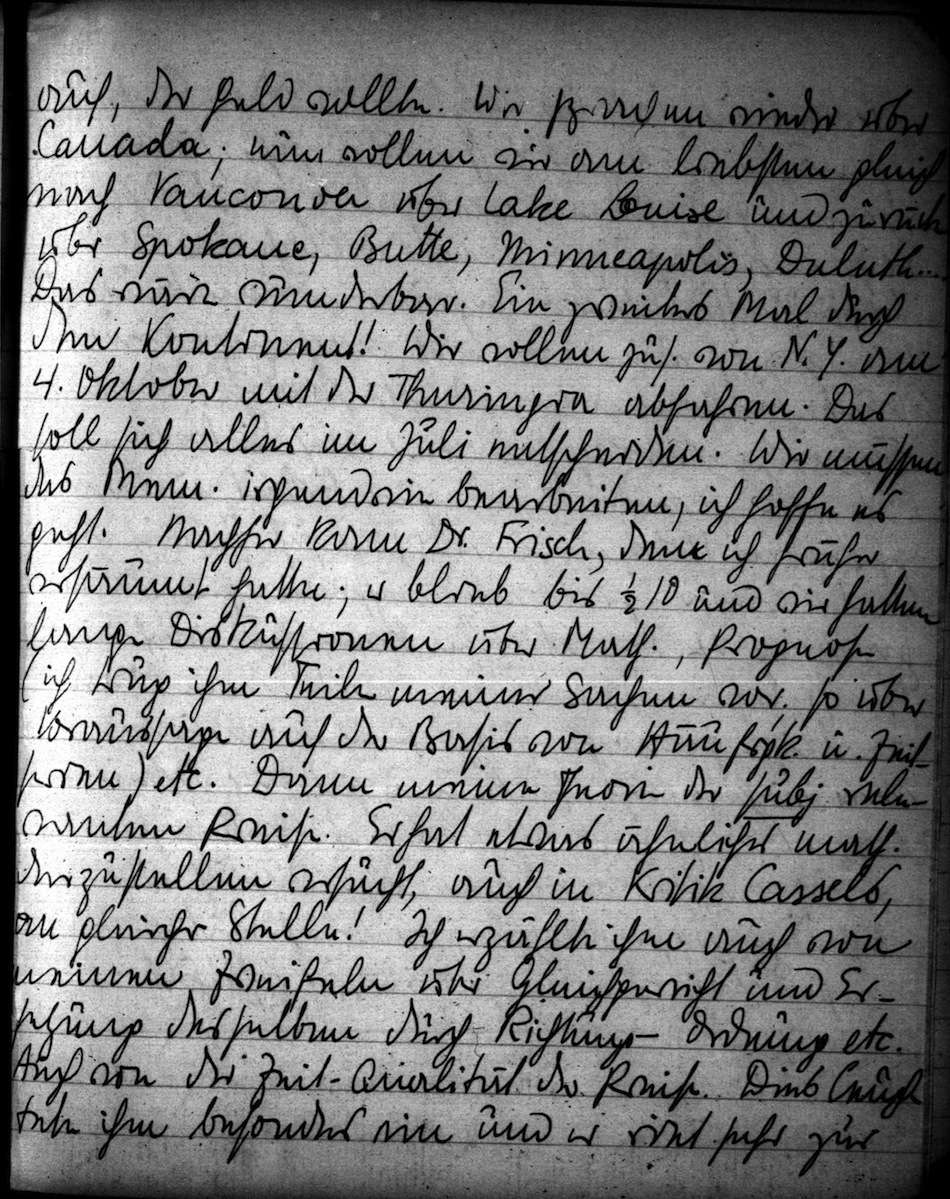 auch, der Geld wollte. Wir sprachen wieder über
Canada; nun wollen wir am liebsten gleich
nach Vancouver über Lake Louise und zurück
über Spokane, Butte, Minneapolis, Duluth...
Das wäre wunderbar. Ein zweites Mal durch
den Kontinent! Wir wollen zus. von N.Y. am
4. Oktober mit der Thuringia abfahren. Das
soll sich alles im Juli entscheiden. Wir müssen
das Mem. irgendwie bearbeiten, ich hoffe es
geht. Nachher kam Dr. Frisch, den ich früher
versäumt hatte; er blieb bis ½10 und wir hatten
lange Diskussionen über Math., Prognose
(ich trug ihm Teile meiner Sachen vor, so über
Voraussage auf der Basis von Häufigk. u. Zeit-
serien) etc. Dann meine Theorie der subj. rele-
vanten Preise. Er hat etwas ähnliches math.
darzustellen versucht, auch in Kritik Cassels,
an gleicher Stelle! Ich erzählte ihm auch von
meinen Zweifeln über Gleichgewicht und Er-
setzung desselben durch Richtungs-Ordnung etc.
Auch von der Zeit-Qualität der Preise. Dies leuch-
tete ihm besonders ein und er riet sehr zur